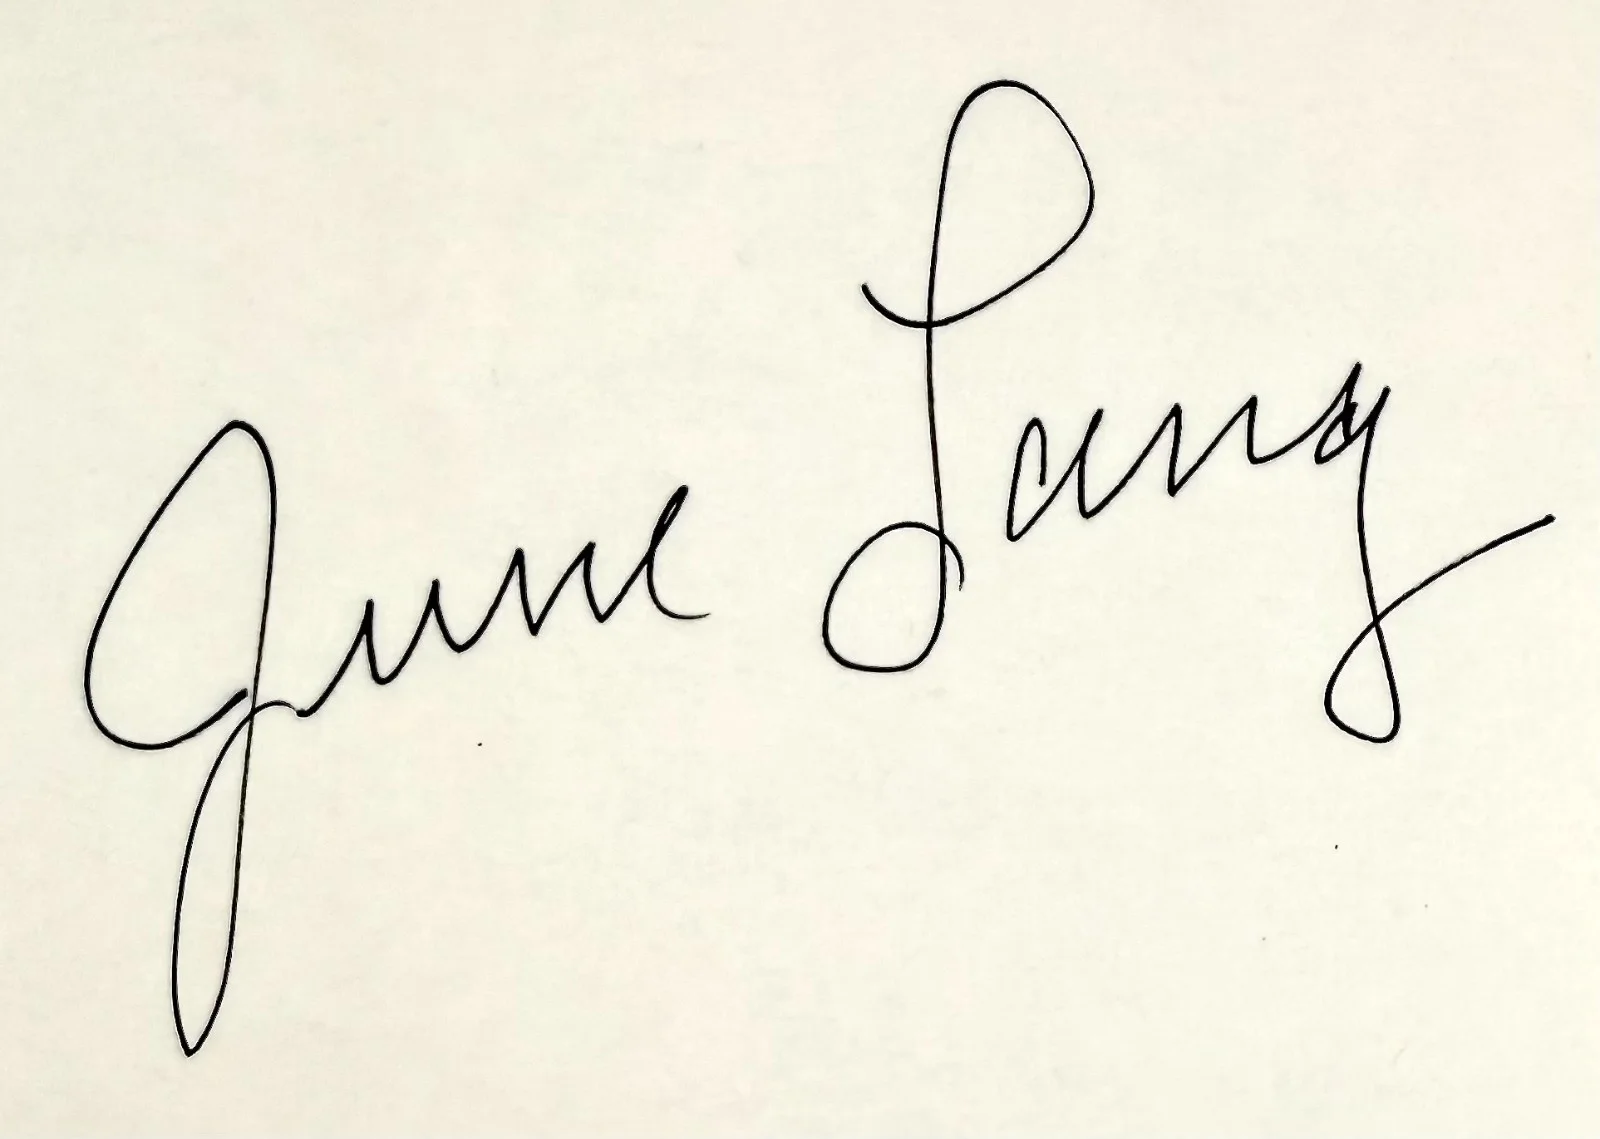 June Lang